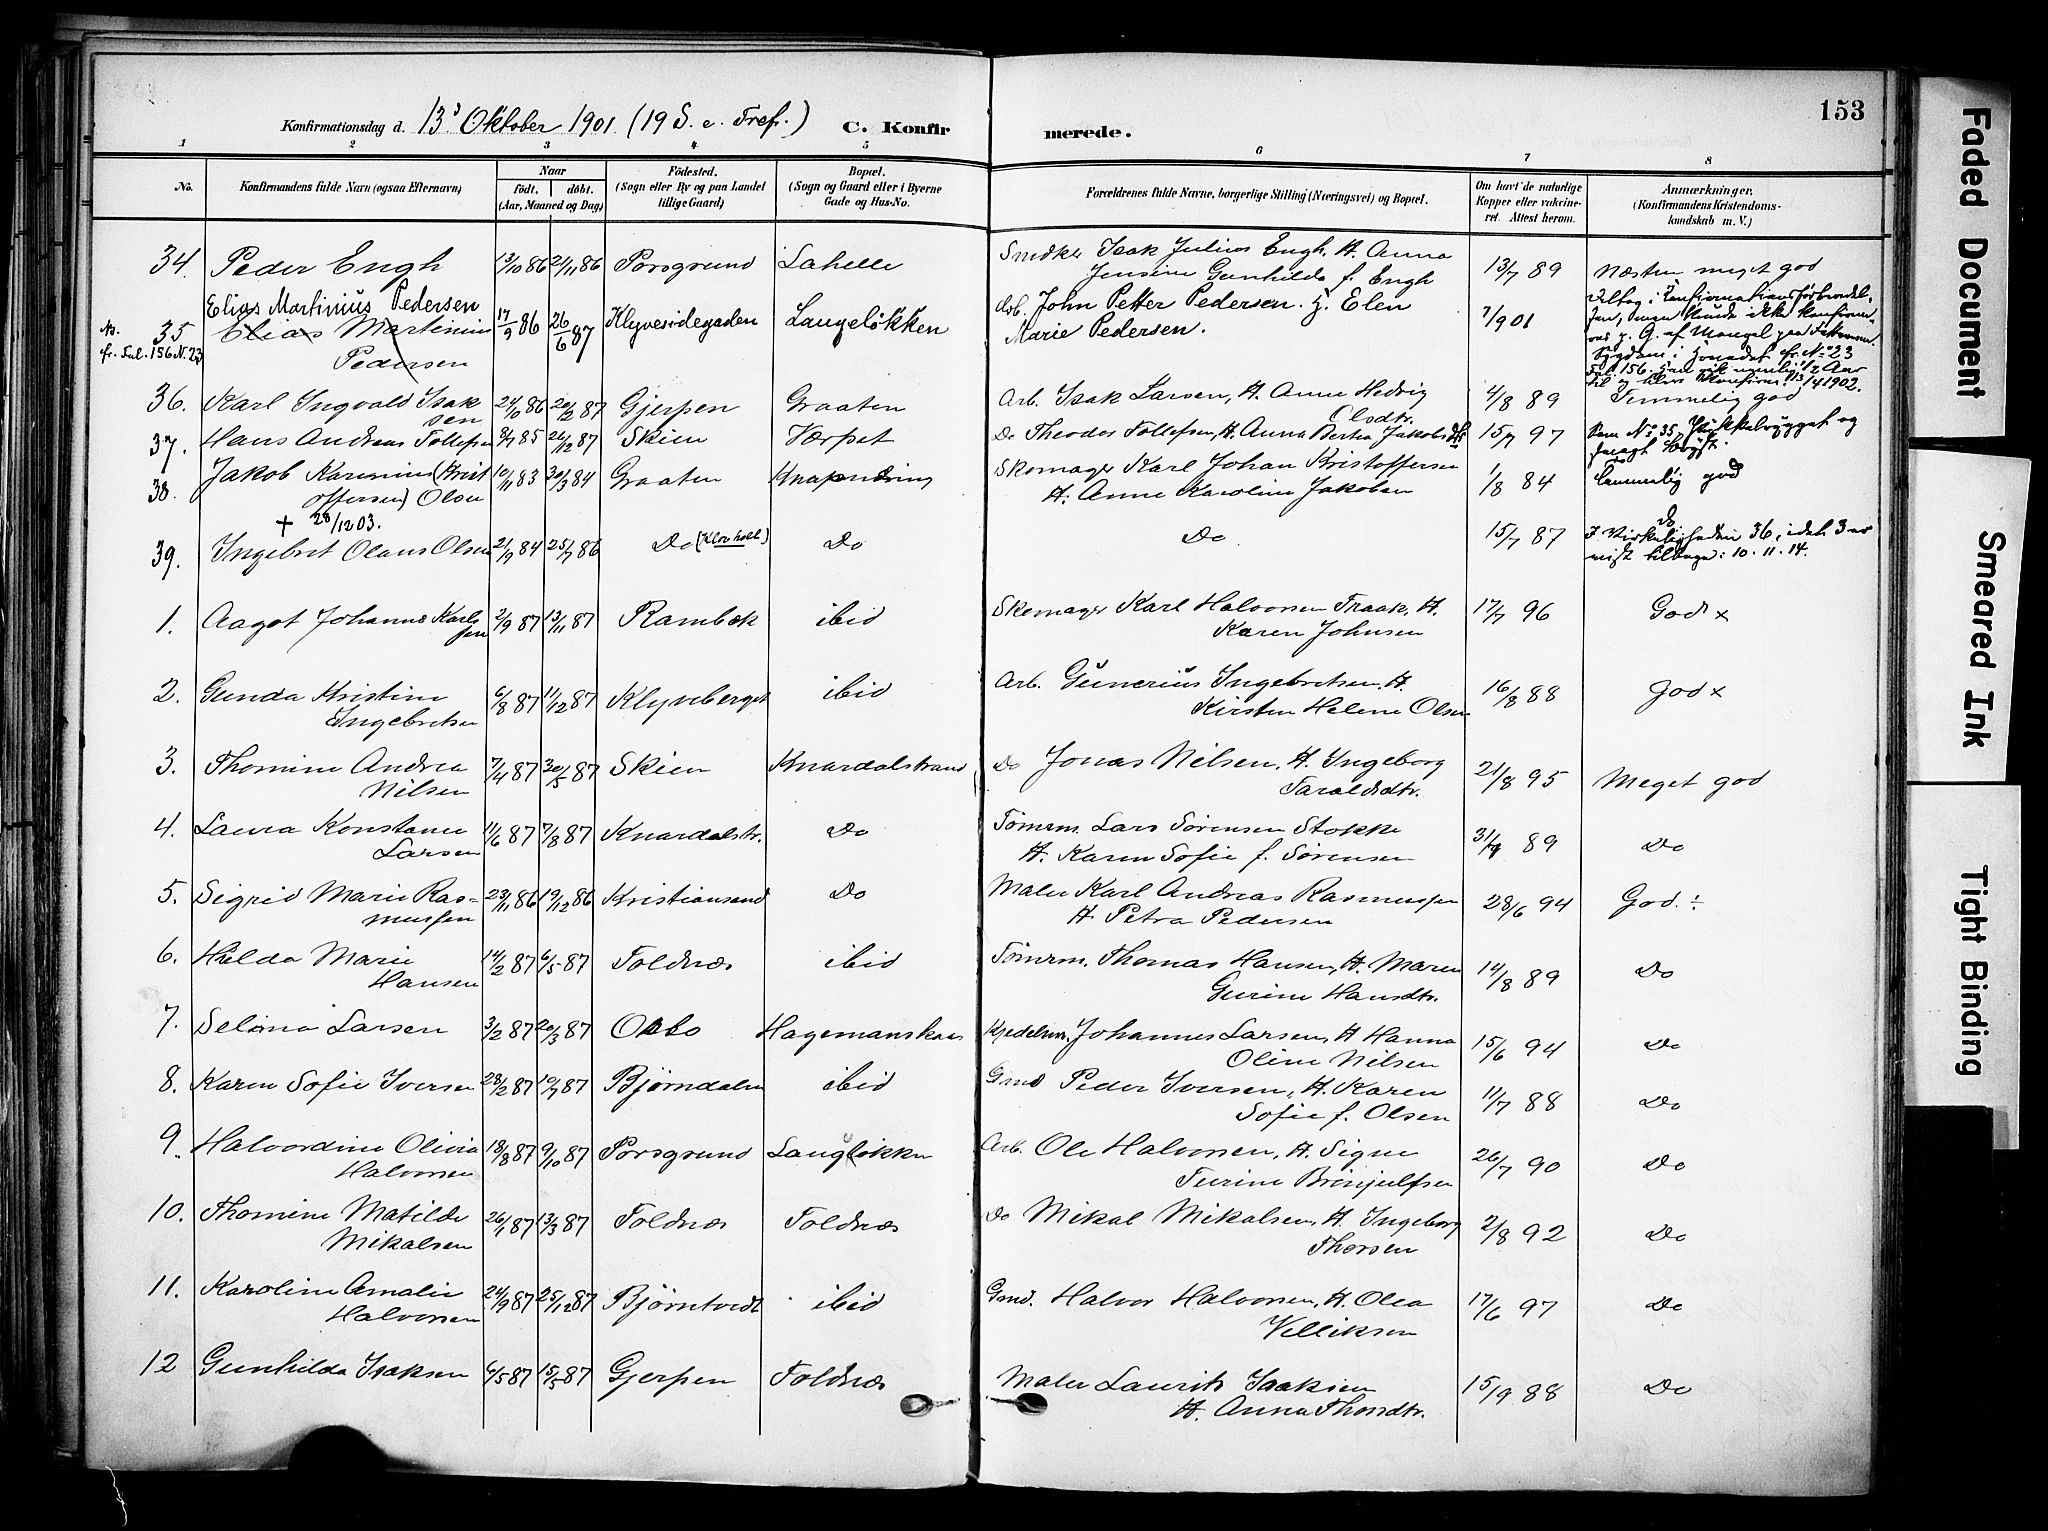 Konfirmationsdag d. 13' Oktober 1901 (19 S. e. Tref.) C. Konfirmerede. 153
1 2 3 4 5 6 7 8
No. Konfirmandens fulde Navn (ogsaa Efternavn) Naar født, døbt, (Aar, Maaned og Dag) Fødested. (Sogn eller By og paa Landet tillige Gaard) Bopæl. (Sogn og Gaard eller i Byerne Gade og Hus-No. Forældrenes fulde Navne, borgerlige Stilling (Næringsvei) og Bopæl. Om havt de naturlige Kopper eller vaccineret. Attest herom. Anmærkninger. (Konfirmandens Kristendomskundskab m. V.)
34. Peder Engh 13/10 86 21/11 86 Porsgrund Lahelle Snedker Isak Julius Engh, H. Anna
Jensine Gunhilda f. Engh 13/7 89 Næsten meget god
Elias Martinius Pedersen
35 Elias Martinius 17/9 86 26/6 87 Klyvesidegaden Langeløkken Arb. John Petter Pedersen. H. Elen
Pedersen Marie Pedersen. 7/1901
fr. Fol. 156 N. 23
Deltog i Konfirmationsforberedel-
sen, men kunde ikke konfirme-
res p. G. af Mangel paa
Sygdom i
36. Karl Ingvald Isak 24/10 86 20/2 87 Gjerpen Graaten Arb. Isak Larsen, H. Anne Hedvig
sen Olsdtr. 4/8 89 Temmelig god
37. Hans Andreas Tollefsen 3/7 85 26/12 87 Skien Værpet Do Theodor Tollefsen, H. Anna Bertea Jakobsdtr 15/7 97 Som No 35,
38. Jakob Karenius (Krist 10/11 83 30/3 84 Graaten Knapnæring Skomager Karl Johan Kristoffersen
offersen) Olsen H. Anne Karoline Jakobsen 1/8 84 Temmelig god
+ 28/12 03.
39. Ingebret Olaus Olsen 21/9 84 25/7 86 Do (Klovholt) Do Do 15/7 87 Do
I Virkeligheden 36, idet 3 er
vist tilbage: 10. 11. 14.
1. Aagot Johanne Karl 2/9 87 13/11 87 Rambæk ibid Skomager Karl Halvorsen Traak, H.
sen Karen Johnsen 17/7 96 God x
2. Gunda Kristine 6/8 87 11/12 87 Klyveberget ibid Arb. Gunerius Ingebretsen, H.
Ingebretsen Kirsten Helene Olsen 16/8 88 God x
3. Thomine Andrea 7/4 87 30/5 87 Skien Knardalstrand Do Jonas Nilsen, H. Ingeborg
Nilsen Taraldsdtr. 21/8 95 Meget god
4. Laura Konstanse 11/6 87 7/8 87 Knardalstr. Do Tømrm. Lars Sørensen Stokke
Larsen H. Karen Sofie f. Sørensen 31/7 89 Do
5. Sigrid Marie Ras- 23/11 86 19/12 86 Kristiansand Do Maler Karl Andreas Rasmussen
mussen H. Petra Pedersen 28/6 94 God. ÷
6. Hilda Marie 14/2 87 6/5 87 Foldnæs ibid Tømrm. Thomas Hansen, H. Maren
Hansen Gurine Hansdtr. 14/8 89 Do
7. Selma Larsen 3/2 87 20/3 87 Osbo Hagemanskaas Kjedelsm. Johannes Larsen, H Hanna
Oline Nilsen 15/6 94 Do
8. Karen Sofie Iversen 28/2 87 10/7 87 Bjørndalen ibid Gmd Peder Iversen, H. Karen
Sofie f. Olsen 11/7 88 Do
9. Halvordine Olivia 18/8 87 9/10 87 Porsgrund Langeløkken Arb. Ole Halvorsen, H. Signe
Halvorsen Turine Brynjulfsen 26/7 90 Do
10. Thomine Matilde 26/1 87 13/3 87 Foldnæs Foldnæs Do Mikal Mikalsen, H. Ingeborg
Mikalsen Thorsen 2/8 92 Do
11. Karoline Amalie 24/9 87 25/12 87 Bjørntvedt ibid Gmd. Halvor Halvorsen, H. Olea
Halvorsen Velliksen 17/6 97 Do
12 Gunhilda Isaksen 6/5 87 15/5 87 Gjerpen Foldnæs Maler Laurits Isaksen
H. Anna Thorsdtr. 15/9 88 Do
Faded Document
Smeared Ink
Tight Binding